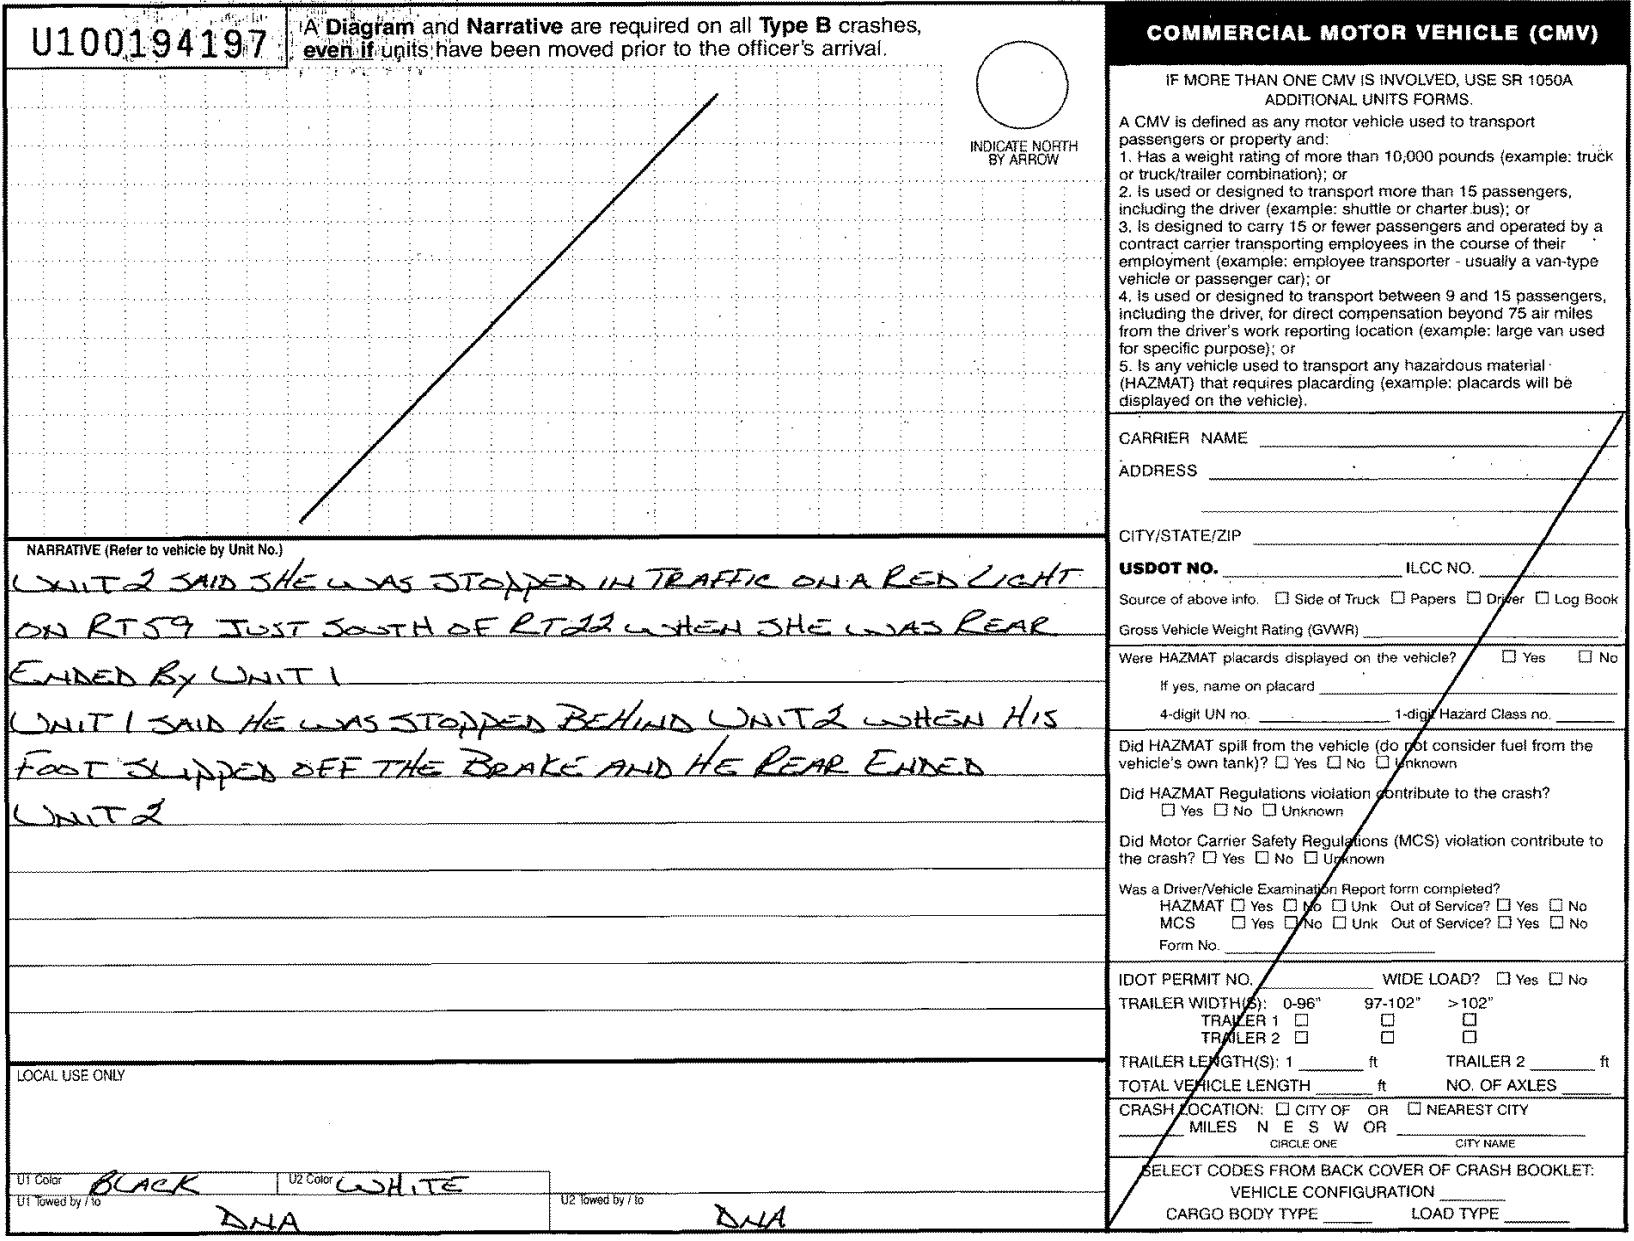 U100194197
A Diagram and Narrative are required on all Type B crashes,
even if units have been moved prior to the officer's arrival.
INDICATE NORTH
BY ARROW
NARRATIVE (Refer to vehicle by Unit No.)
UNIT 2 SAID SHE WAS STOPPED IN TRAFFIC ON A RED LIGHT
ON RT59 JUST SOUTH OF RT22 WHEN SHE WAS REAR
ENDED BY UNIT 1
UNIT 1 SAID HE WAS STOPPED BEHIND UNIT 2 WHEN HIS
FOOT SLIPPED OFF THE BRAKE AND HE REAR ENDED
UNIT 2
LOCAL USE ONLY
U1 Color BLACK U2 Color WHITE
U1 Towed by / to DNA U2 Towed by / to DNA
COMMERCIAL MOTOR VEHICLE (CMV)
IF MORE THAN ONE CMV IS INVOLVED, USE SR 1050A
ADDITIONAL UNITS FORMS.
A CMV is defined as any motor vehicle used to transport
passengers or property and:
1. Has a weight rating of more than 10,000 pounds (example: truck
or truck/trailer combination); or
2. Is used or designed to transport more than 15 passengers,
including the driver (example: shuttle or charter bus); or
3. Is designed to carry 15 or fewer passengers and operated by a
contract carrier transporting employees in the course of their
employment (example: employee transporter - usually a van-type
vehicle or passenger car); or
4. Is used or designed to transport between 9 and 15 passengers,
including the driver, for direct compensation beyond 75 air miles
from the driver's work reporting location (example: large van used
for specific purpose); or
5. Is any vehicle used to transport any hazardous material
(HAZMAT) that requires placarding (example: placards will be
displayed on the vehicle).
CARRIER NAME
ADDRESS
CITY/STATE/ZIP
USDOT NO. ILCC NO.
Source of above info. ☐ Side of Truck ☐ Papers ☐ Driver ☐ Log Book
Gross Vehicle Weight Rating (GVWR)
Were HAZMAT placards displayed on the vehicle? ☐ Yes ☐ No
If yes, name on placard
4-digit UN no. 1-digit Hazard Class no.
Did HAZMAT spill from the vehicle (do not consider fuel from the
vehicle's own tank)? ☐ Yes ☐ No ☐ Unknown
Did HAZMAT Regulations violation contribute to the crash?
☐ Yes ☐ No ☐ Unknown
Did Motor Carrier Safety Regulations (MCS) violation contribute to
the crash? ☐ Yes ☐ No ☐ Unknown
Was a Driver/Vehicle Examination Report form completed?
HAZMAT ☐ Yes ☐ No ☐ Unk Out of Service? ☐ Yes ☐ No
MCS ☐ Yes ☐ No ☐ Unk Out of Service? ☐ Yes ☐ No
Form No.
IDOT PERMIT NO. WIDE LOAD? ☐ Yes ☐ No
TRAILER WIDTH(S): 0-96" 97-102" >102"
TRAILER 1 ☐ ☐ ☐
TRAILER 2 ☐ ☐ ☐
TRAILER LENGTH(S): 1 ft TRAILER 2 ft
TOTAL VEHICLE LENGTH ft NO. OF AXLES
CRASH LOCATION: ☐ CITY OF OR ☐ NEAREST CITY
MILES N E S W OR
CIRCLE ONE CITY NAME
SELECT CODES FROM BACK COVER OF CRASH BOOKLET:
VEHICLE CONFIGURATION
CARGO BODY TYPE LOAD TYPE